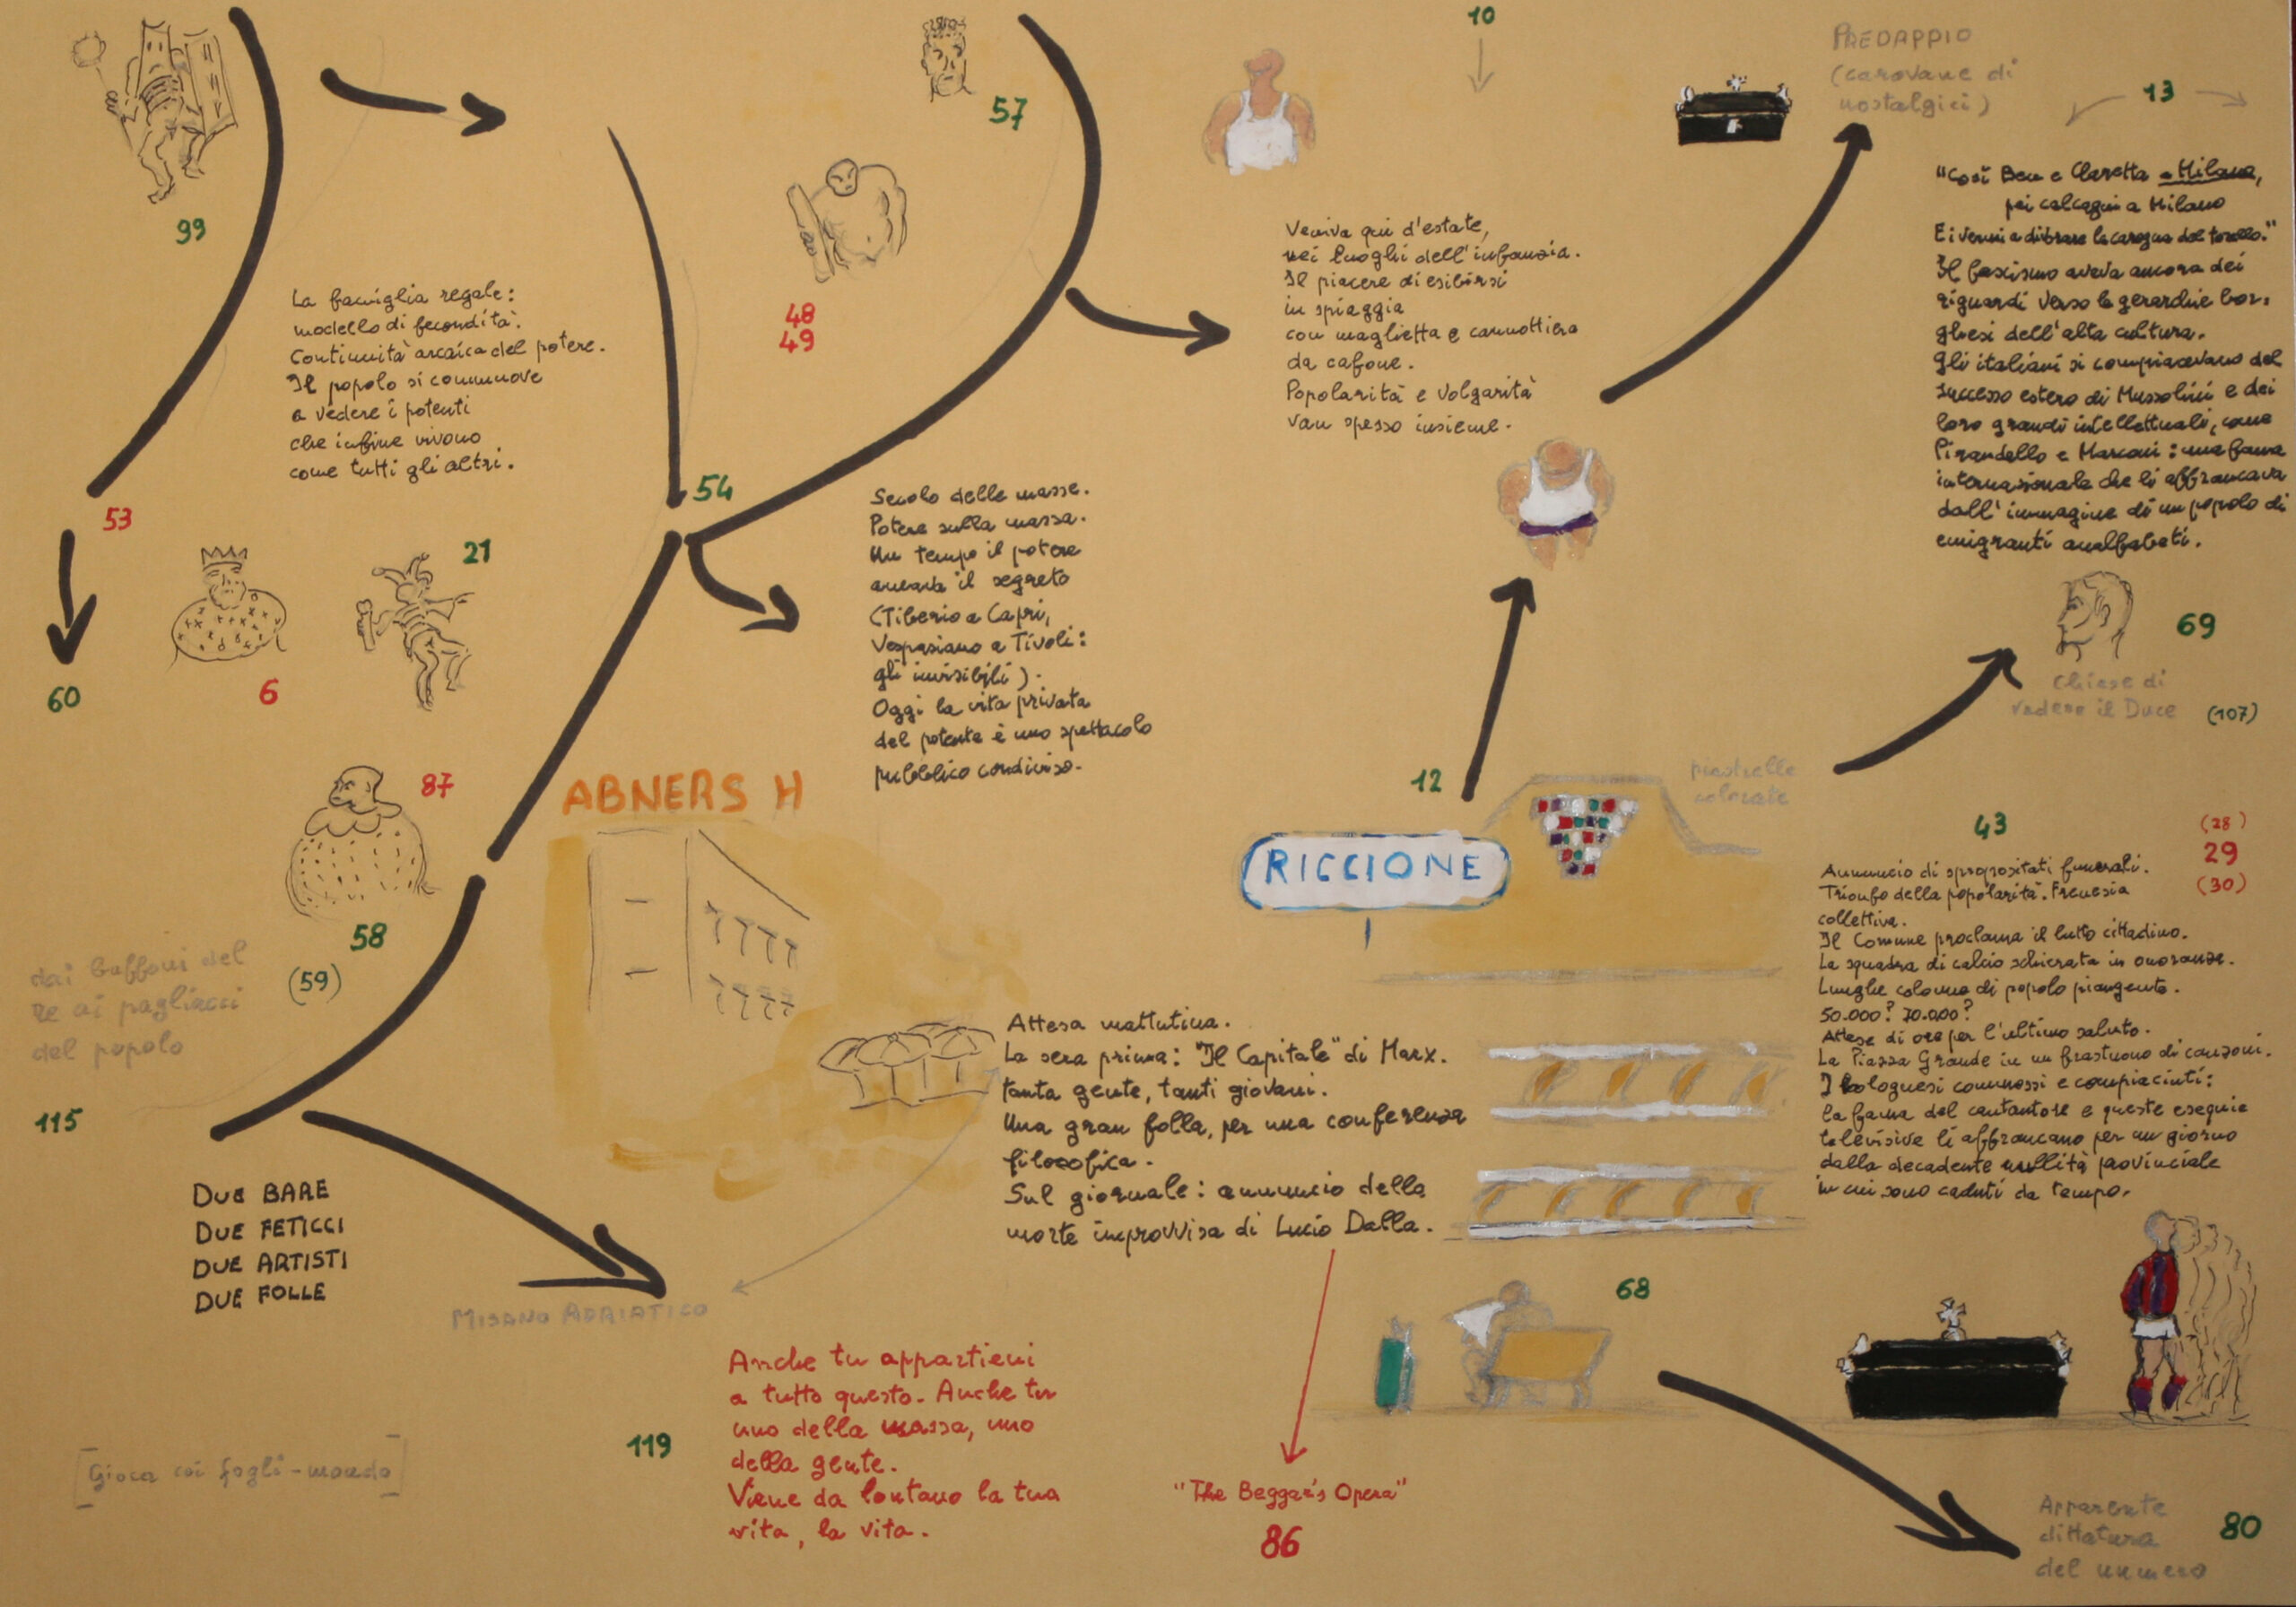 99
La famiglia regale:
modello di fecondità.
Continuità arcaica del potere.
Il popolo si commuove
a vedere i potenti
che infine vivono
come tutti gli altri.
53
60
6
21
87
58
(59)
dai buffoni del
re ai pagliacci
del popolo
115
DUE BARE
DUE FETICCI
DUE ARTISTI
DUE FOLLE
[Gioca coi fogli-mondo]
57
48
49
54
Secolo delle masse.
Potere sulla massa.
Un tempo il potere
amava il segreto
(Tiberio a Capri,
Vespasiano a Tivoli:
gli invisibili).
Oggi la vita privata
del potente è uno spettacolo
pubblico condiviso.
ABNERS H
Attesa mattutina.
La sera prima: "Il Capitale" di Marx.
tanta gente, tanti giovani.
Una gran folla, per una conferenza
filosofica.
Sul giornale: annuncio della
morte improvvisa di Lucio Dalla.
MISANO ADRIATICO
119
Anche tu appartieni
a tutto questo. Anche tu
uno della massa, uno
della gente.
Viene da lontano la tua
vita, la vita.
"The Beggar's Opera"
86
10
Veniva qui d'estate,
nei luoghi dell'infanzia.
Il piacere di esibirsi
in spiaggia
con maglietta e cannottiera
da cafone.
Popolarità e Volgarità
van spesso insieme.
12
RICCIONE
piastrelle
colorate
68
PREDAPPIO
(carovane di
nostalgici)
13
"Così Ben e Claretta a Milano,
pei calcagni a Milano
E i vermi a
la carogna del torello."
Il fascismo aveva ancora dei
riguardi verso le gerarchie bor-
ghesi dell'alta cultura.
Gli italiani si compiacevano del
successo estero di Mussolini e dei
loro grandi intellettuali, come
Pirandello e Marconi: una fama
internazionale che li affrancava
dall'immagine di un popolo di
emigranti analfabeti.
69
Chiese di
vedere il Duce
(107)
43
(28)
29
(30)
Annuncio di spropositati funerali.
Trionfo della popolarità. Frenesia
collettiva.
Il Comune proclama il lutto cittadino.
La squadra di calcio schierata in onoranze.
Lunghe colonne di popolo piangente.
50.000? 70.000?
Attese di ore per l'ultimo saluto.
La Piazza Grande in un frastuono di canzoni.
I bolognesi commossi e compiaciuti:
la fama del cantautore e queste esequie
televisive li affrancano per un giorno
dalla decadente nullità provinciale
in cui sono caduti da tempo.
Apparente
dittatura
del numero
80